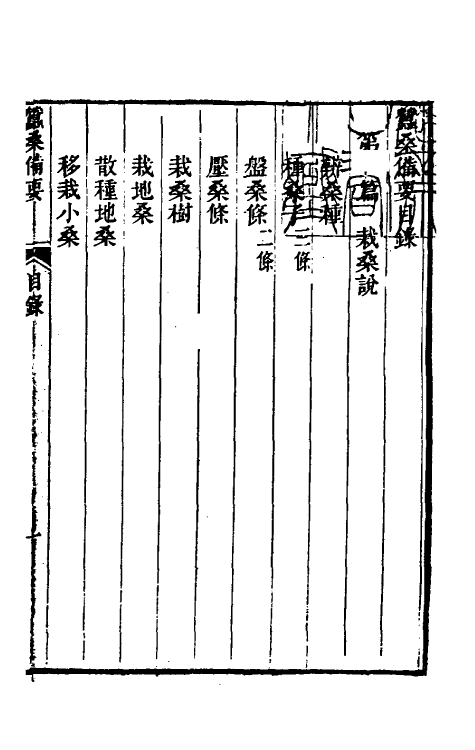 蠶桑備要目錄
第 篇 栽桑說
辨桑種
種桑子 三條
盤桑條 二條
壓桑條
栽桑樹
栽地桑
散種地桑
移栽小桑
蠶桑備要 目錄 一